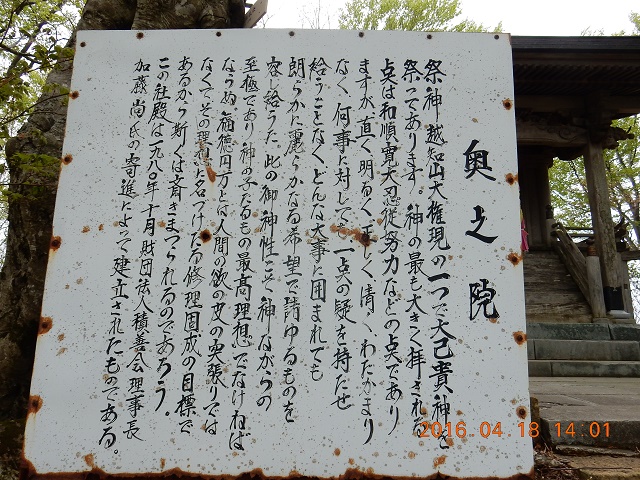 奥之院
祭神越知山大権現の一つで大己貴神を
祭ってあります。神の最も大きく拝される
点は和順寛大忍従努力などの点であり
ますが直く明るく正しく清く、わだかまり
なく何事に対しても一点の疑を持たせ
給うことなくどんな大事に囲まれても
朗らかに麗らかなる希望で請ゆるものを
容し給うた此の御神性こそ神ながらの
至極であり神の子たるもの最高理想でなければ
ならぬ福徳円方とは人間の欲の皮の突張りでは
なくてその理想に名づけたる修理固成の目標で
あるから斯くは斎きまつられるのであろう。
この社殿は一九八〇年十月財団法人積善会理事長
加藤尚氏の寄進によって建立されたものである。
2016.04.18 14:01